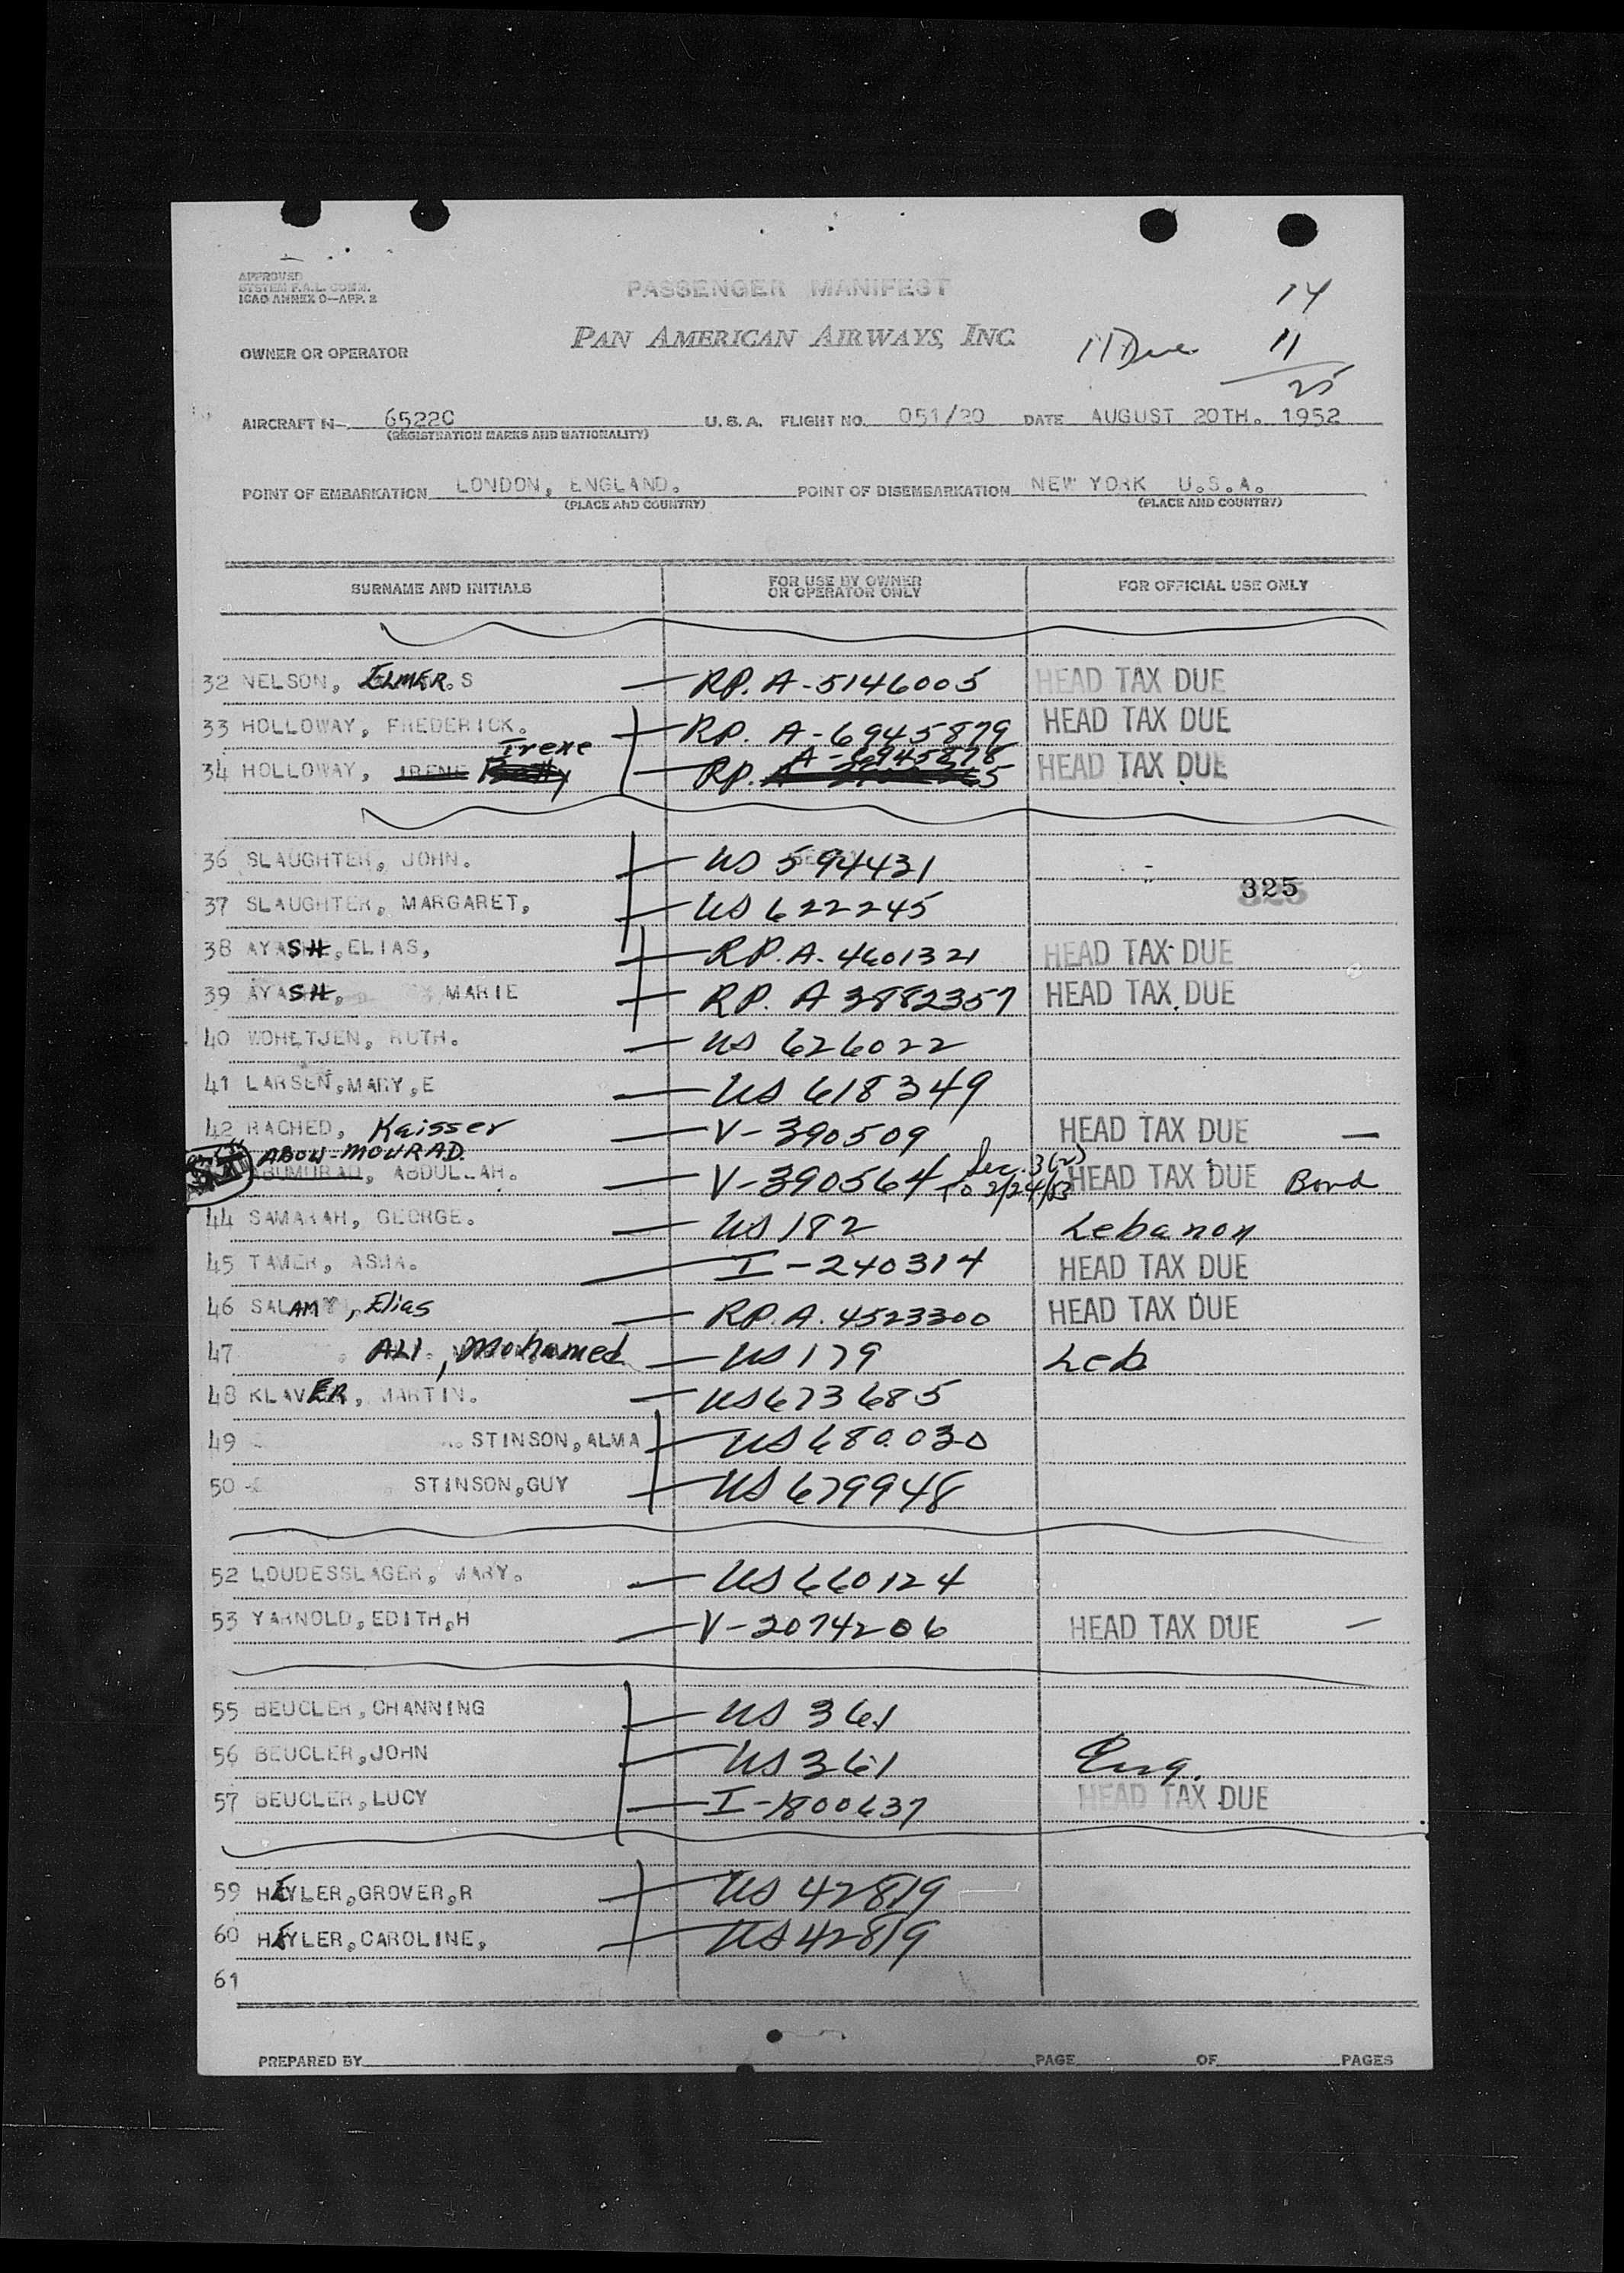 APPROVED
SYSTEM F.A.L. COMM.
ICAO ANNEX 9—APP. 2
PASSENGER MANIFEST
14
OWNER OR OPERATOR
PAN AMERICAN AIRWAYS, INC.
11 Due
11
25
AIRCRAFT N- 6522C U.S.A. FLIGHT NO. 051/20 DATE AUGUST 20TH. 1952
(REGISTRATION MARKS AND NATIONALITY)
POINT OF EMBARKATION LONDON, ENGLAND. POINT OF DISEMBARKATION NEW YORK U.S.A.
(PLACE AND COUNTRY) (PLACE AND COUNTRY)
SURNAME AND INITIALS FOR USE BY OWNER OR OPERATOR ONLY FOR OFFICIAL USE ONLY
32 NELSON, ELMER. S — RP. A-5146005 HEAD TAX DUE
33 HOLLOWAY, FREDERICK. — RP. A-6945879 HEAD TAX DUE
Irene A-6945878
34 HOLLOWAY, IRENE Betty — RP. HEAD TAX DUE
36 SLAUGHTER, JOHN. — US 594431
325
37 SLAUGHTER, MARGARET, — US 622245
38 AYASH, ELIAS, — RP. A. 4601321 HEAD TAX DUE
39 AYASH, MARIE — RP. A 3882357 HEAD TAX DUE
40 WOHLTJEN, RUTH. — US 626022
41 LARSEN, MARY, E — US 618349
42 RACHED, Kaisser — V-390509 HEAD TAX DUE —
ABOU-MOURAD Sec. 3(2)
ABUMURAD, ABDULLAH. — V-390564 to 2/24/53 HEAD TAX DUE Bond
44 SAMARAH, GEORGE. — US 182 Lebanon
45 TAMER, ASMA. — I-240314 HEAD TAX DUE
46 SALAMY, Elias — RP. A. 4523300 HEAD TAX DUE
47 ALI, Mohamed — US 179 Leb
48 KLAVER, MARTIN. — US 673685
49 STINSON, ALMA — US 680030
50 STINSON, GUY — US 679948
52 LOUDESSLAGER, MARY. — US 660124
53 YARNOLD, EDITH, H — V-2074206 HEAD TAX DUE —
55 BEUCLER, CHANNING — US 361
56 BEUCLER, JOHN — US 361 Eng.
57 BEUCLER, LUCY — I-1800637 HEAD TAX DUE
59 HEYLER, GROVER, R — US 42819
60 HEYLER, CAROLINE, — US 42819
61
PREPARED BY PAGE OF PAGES